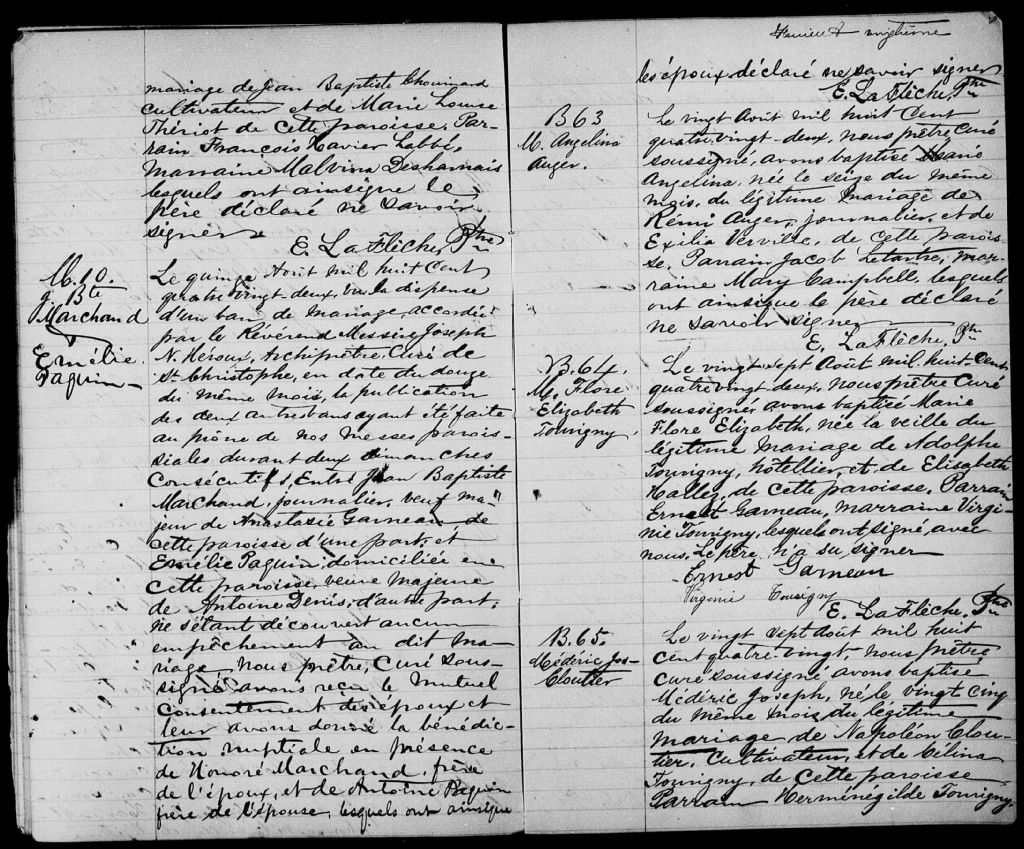 mariage de Jean Baptiste Chouinard
cultivateur et de Marie Louise
Thériot de cette paroisse, Par-
rain François Xavier Labbé,
Marraine Malvina Desharnais
lesquels ont ainsique le
père déclaré ne savoir
signer
E. LaFlèche, Ptre
M. 10.
J. Bte
Marchand
&
Emélie
Paquin
Le quinze Août mil huit cent
quatre vingt-deux, vu la dispense
d'un ban de mariage, accordée
par le Révérend Messire Joseph
N. Héroux, Archiprêtre, Curé de
St. Christophe, en date du douze
du même mois, la publication
des deux autres bans ayant été faite
au prône de nos messes parois-
siales durant deux dimanches
Consécutifs, Entre Jean Baptiste
Marchand, journalier, veuf ma-
jeur de Anastasie Garneau, de
cette paroisse d'une part, et
Emélie Paquin, domiciliée en
cette paroisse, veuve majeure
de Antoine Denis, d'autre part,
ne s'étant découvert aucun
empêchement au dit ma-
riage, nous prêtre, Curé sous-
signé avons reçu le mutuel
consentement des époux et
leur avons donné la bénédic-
tion nuptiale en présence
de Honoré Marchand, frère
de l'époux, et de Antoine Paquin
frère de l'épouse, lesquels ont ainsique
Feuillet vingtième
les époux déclaré ne savoir signer
E. LaFlèche, Ptre
B 63
M. Angelina
Auger.
Le vingt Août mil huit Cent
quatre vingt-deux, nous prêtre Curé
soussigné, avons baptisé Marie
Angelina, née le seize du même
mois, du légitime mariage de
Rémi Auger, journalier, et de
Exilia Verville, de cette parois-
se, Parrain Jacob Letartre, mar-
raine Mary Campbell, lesquels
ont ainsique le père déclaré
ne savoir signer
E. LaFlèche, Ptr
B. 64.
M. Flore
Elizabeth
Tourigny.
Le vingt-sept Août mil huit cent
quatre vingt deux, nous prêtre Curé
soussigné avons baptisé Marie
Flore Elizabeth, née la veille du
légitime mariage de Adolphe
Tourigny, hotellier, et de Elisabeth
Halley, de cette paroisse, Parrain
Ernest Garneau, marraine Virgi-
nie Tourigny, lesquels ont signé avec
nous, Le père n'a su signer
Ernest Garneau
Virginie Tourigny
E. LaFlèche, Ptre
B. 65.
Médéric Jos-
Cloutier
Le vingt sept Août mil huit
cent quatre vingt, nous prêtre
curé soussigné avons baptisé
Médéric Joseph, né le vingt cinq
du même mois, du légitime
mariage de Napoléon Clou-
tier, Cultivateur, et de Célina
Tourigny, de cette paroisse
Parrain Herménégilde Tourigny,